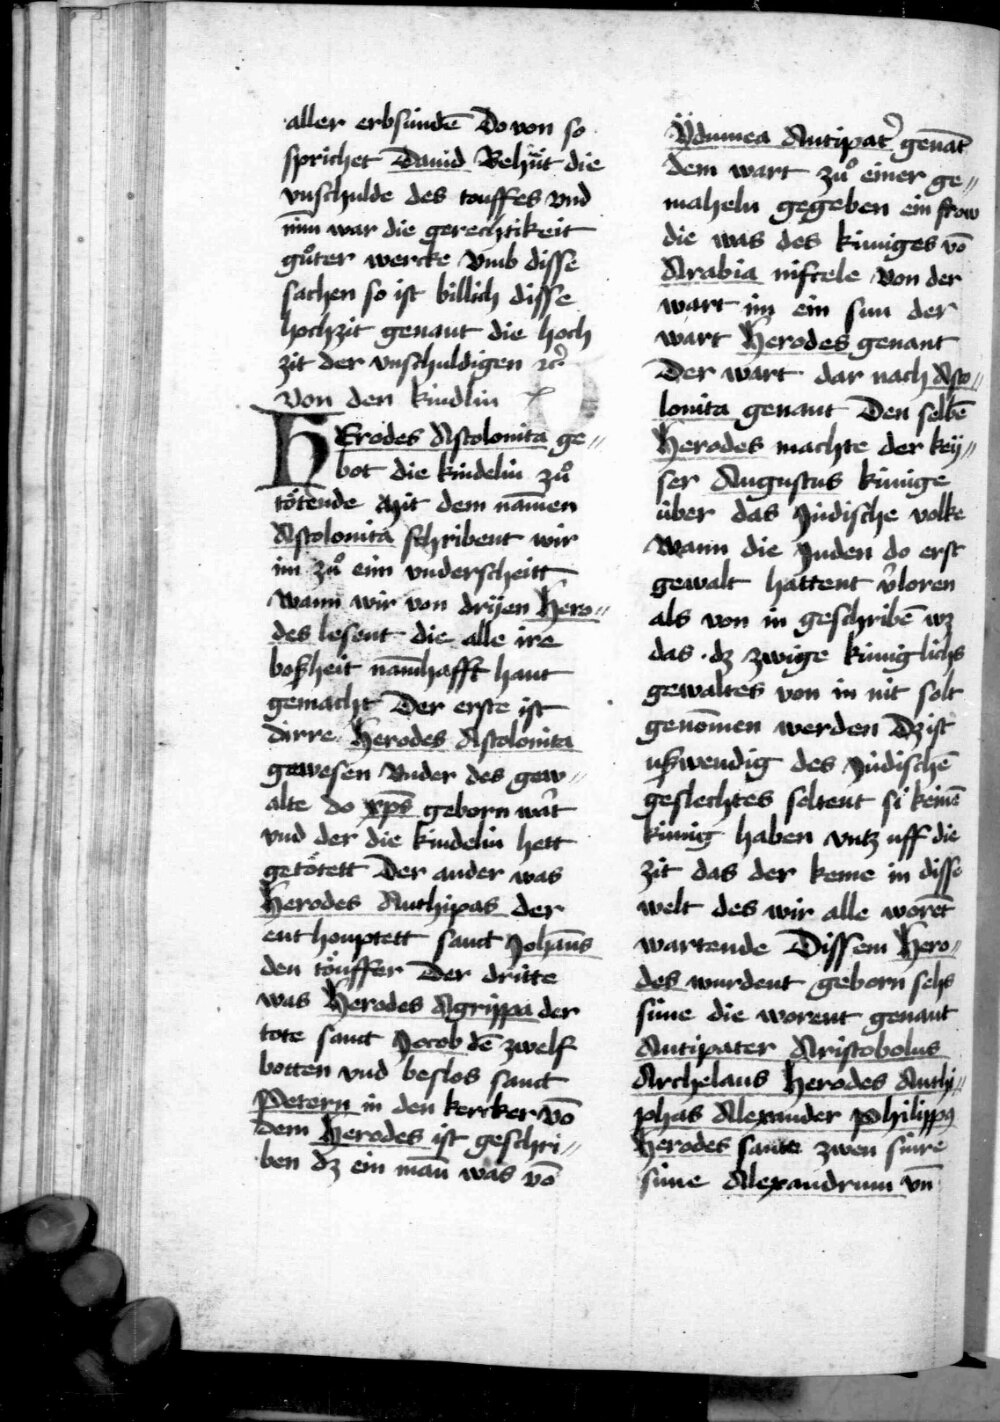 aller erbsündē Do von so
sprichet Dauid Behüt die
vnschulde des touffes vnd
nim̄ war die gerechtikeit
gůter wercke Vmb disse
sachen so ist billich disse
hochzit genant die hoch
zit der vnschuldigen ⁊c̉
Von den kindlin
HErodes Astolonita ge〃
bot die kindelin zů
tötende Mit dem nam̄en
Astolonita schribent wir
im zů eim vnderscheitt
Wann wir von drijen Hero〃
des lesent die alle ire
boßheit nam̄hafft hant
gemacht Der erste ist
dirre Herodes Astolonita
gewesen Vnder des gew〃
alte do xp̄s geborn wart
vnd der die kindelin hett
getötett Der ander was
Herodes Anthipas der
enthouptett sanct Joh̄ans
den töuffer Der dritte
was Herodes Agrippa der
tote sanct Jocob dē zwelf
botten vnd beslos sanct
Petern in den kercker vō
dem Herodes ist geschri〃
ben dz ein man̄ was vō
Ydumea Antipat̉ genāt
dem wart zů einer ge〃
maheln gegeben ein frow
die was des küniges vō
Arabia niftele Von der
wart im ein sun der
wart Herodes genant
Der wart dar nach Asto〃
lonita genant Den selbē
Herodes machte der key〃
ser Augustus künige
über das Jüdische volke
Wann die Juden do erst
gewalt hattent v̉loren
als von in geschribē wz
das dz zwige küniglichs
gewaltes von in nit solt
genom̄en werden Dz ist
ußwendig des Jüdischē
geslechtes soltent si keinē
künig haben vntz uff die
zit das der keme in disse
welt des wir alle worēt
wartende Dissem Hero〃
des wurdent geborn sehs
süne die worent genant
Antipater Aristobolus
Archelaus Herodes Anthi〃
phas Alexander Philippꝯ
Herodes sante zwen sinre
süne Alexandrum vn̄